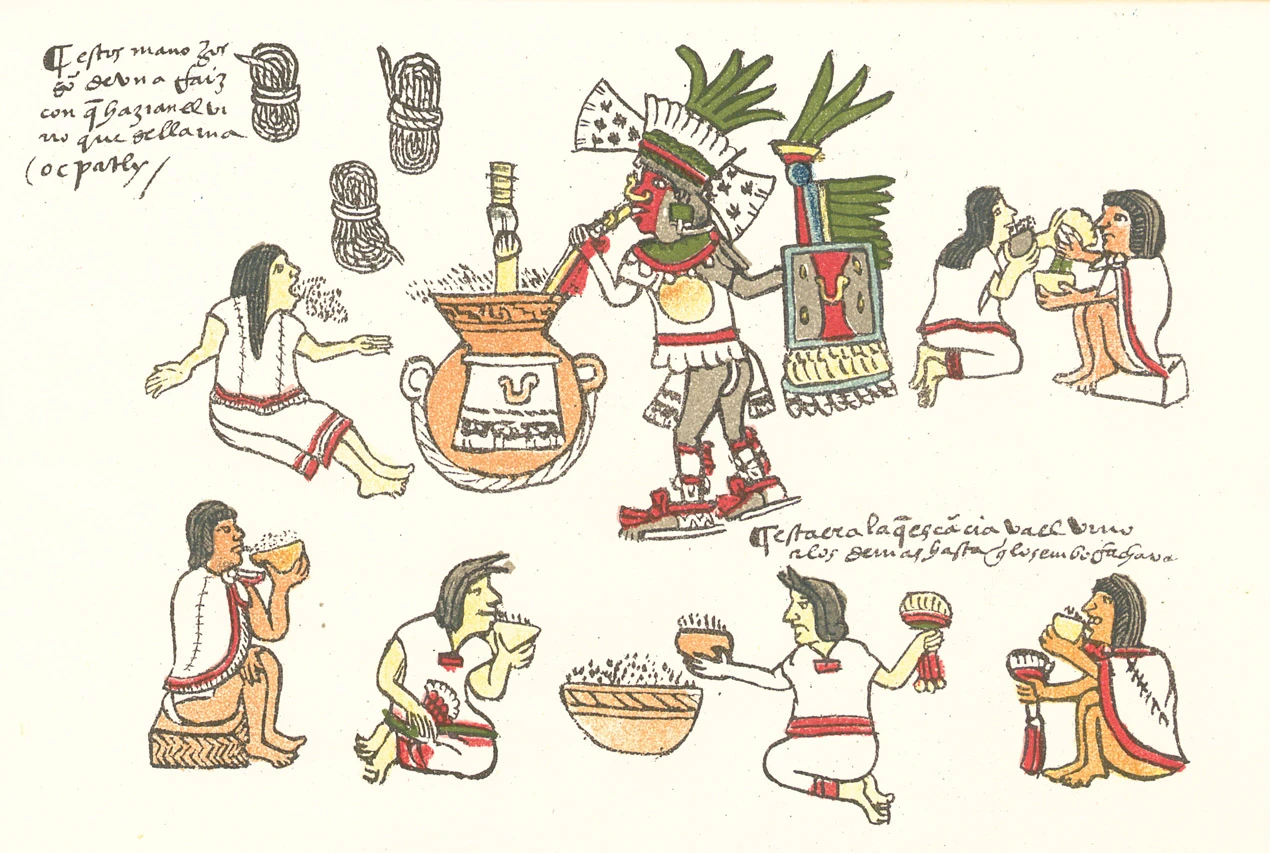 ¶ estos mano Jos
sõ de vna Raiz
con q̃ hazian el vi
no que se llama
(ocpatly /
¶ esta era la q̃ escãciaua el vino
a los demas hasta q̃ los emborrachaua